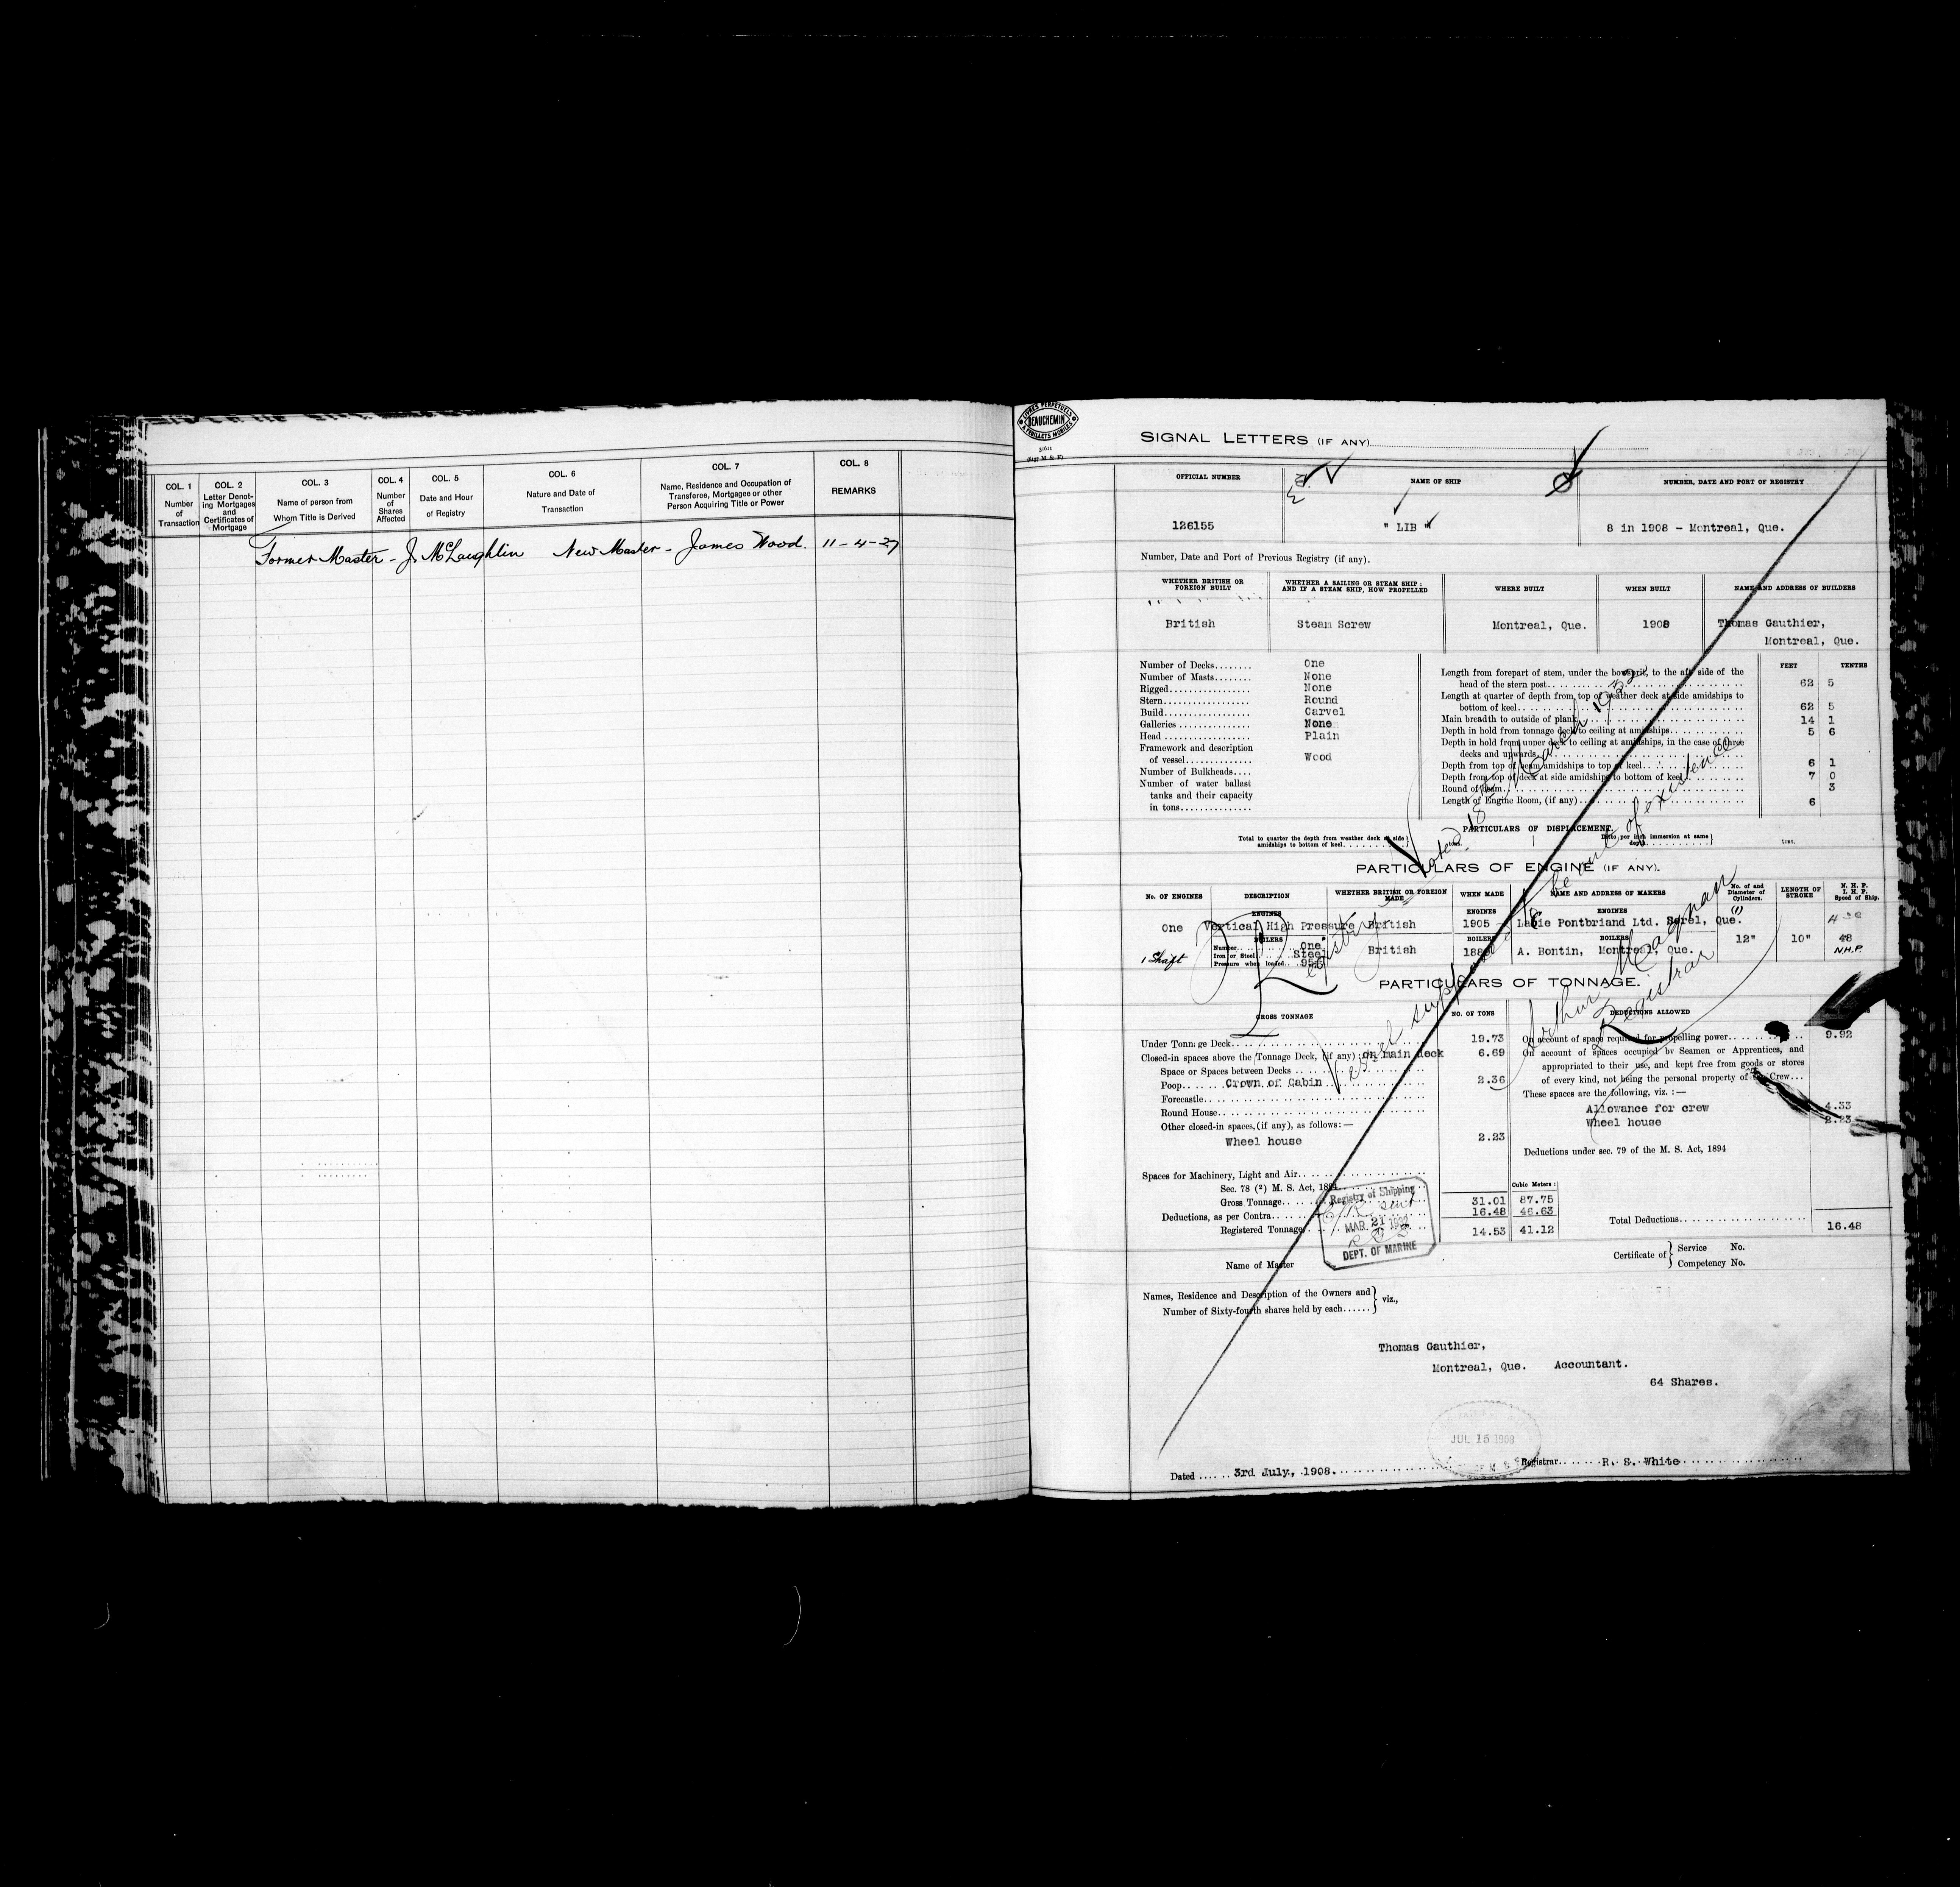 COL. 1 COL. 2 COL. 3 COL. 4 COL. 5 COL. 6 COL. 7 COL. 8
Number of Transaction
Letter Denoting Mortgages and Certificates of Mortgage
Name of person from Whom Title is Derived
Number of Shares Affected
Date and Hour of Registry
Nature and Date of Transaction
Name, Residence and Occupation of Transferee, Mortgagee or other Person Acquiring Title or Power
REMARKS
Former Master - J. McLaughlin New Master - James Wood. 11-4-27
LIVRES PERPETUELS
BEAUCHEMIN
A FEUILLETS MOBILES
SIGNAL LETTERS (IF ANY)
OFFICIAL NUMBER NAME OF SHIP NUMBER, DATE AND PORT OF REGISTRY
126155 " LIB " 8 in 1908 - Montreal, Que.
Number, Date and Port of Previous Registry (if any).
WHETHER BRITISH OR FOREIGN BUILT
WHETHER A SAILING OR STEAM SHIP; AND IF A STEAM SHIP, HOW PROPELLED
WHERE BUILT
WHEN BUILT
NAME AND ADDRESS OF BUILDERS
British Steam Screw Montreal, Que. 1908 Thomas Gauthier,
Montreal, Que.
Number of Decks........ One
Number of Masts........ None
Rigged................. None
Stern.................. Round
Build.................. Carvel
Galleries.............. None
Head................... Plain
Framework and description
of vessel.............. Wood
Number of Bulkheads....
Number of water ballest
tanks and their capacity
in tons..............
FEET TENTHS
Length from forepart of stem, under the bowsprit, to the aft side of the
head of the stern post 62 5
Length at quarter of depth from top of weather deck at side amidships to
bottom of keel 62 5
Main breadth to outside of plank 14 1
Depth in hold from tonnage deck to ceiling at amidships 5 6
Depth in hold from upper deck to ceiling at amidships, in the case of three
decks and upwards
Depth from top of beam amidships to top of keel 6 1
Depth from top of deck at side amidships to bottom of keel 7 0
Round of Beam 3
Length of Engine Room, (if any) 6
PARTICULARS OF DISPLACEMENT.
Total to quarter the depth from weather deck at side amidships to bottom of keel tons.
Ditto per inch immersion at same depth tons.
PARTICULARS OF ENGINE (IF ANY).
No. OF ENGINES DESCRIPTION WHETHER BRITISH OR FOREIGN MADE WHEN MADE NAME AND ADDRESS OF MAKERS No. of and Diameter of Cylinders. LENGTH OF STROKE N. H. P. I. H. P. Speed of Ship.
ENGINES ENGINES ENGINES (1)
One Vertical High Pressure British 1905 Pontbriand Ltd. Sorel, Que.
BOILERS BOILERS BOILERS 12" 10" 48
Number One
Iron or Steel Steel British A. Bontin, Montreal, Que.
Pressure when loaded
1 Shaft N.H.P.
PARTICULARS OF TONNAGE.
GROSS TONNAGE NO. OF TONS DEDUCTIONS ALLOWED
Under Tonnage Deck 19.73
Closed-in spaces above the Tonnage Deck, (if any) : on main deck 6.69
Space or Spaces between Decks
Poop Crown of Cabin 2.36
Forecastle
Round House
Other closed-in spaces, (if any), as follows:—
Wheel house 2.23
Spaces for Machinery, Light and Air
Sec. 78 (2) M. S. Act, 1894
Gross Tonnage 31.01 87.75
Deductions, as per Contra 16.48 46.63
Registered Tonnage 14.53 41.12
Cubic Meters :
On account of space required for propelling power 9.92
On account of spaces occupied by Seamen or Apprentices, and
appropriated to their use, and kept free from goods or stores
of every kind, not being the personal property of the Crew...
These spaces are the following, viz. :—
Allowance for crew 4.33
Wheel house 2.23
Deductions under sec. 79 of the M. S. Act, 1894
Total Deductions 16.48
Name of Master
Certificate of Service No.
Competency No.
Names, Residence and Description of the Owners and
Number of Sixty-fourth shares held by each...... viz.,
Thomas Gauthier,
Montreal, Que. Accountant.
64 Shares.
Dated 3rd July, 1908. Registrar R. S. White
JUL 15 1908
Registry of Shipping
MAR. 21
DEPT. OF MARINE
Registry closed 18th March 1952
Vessel supposed to be out of existence
Registrar